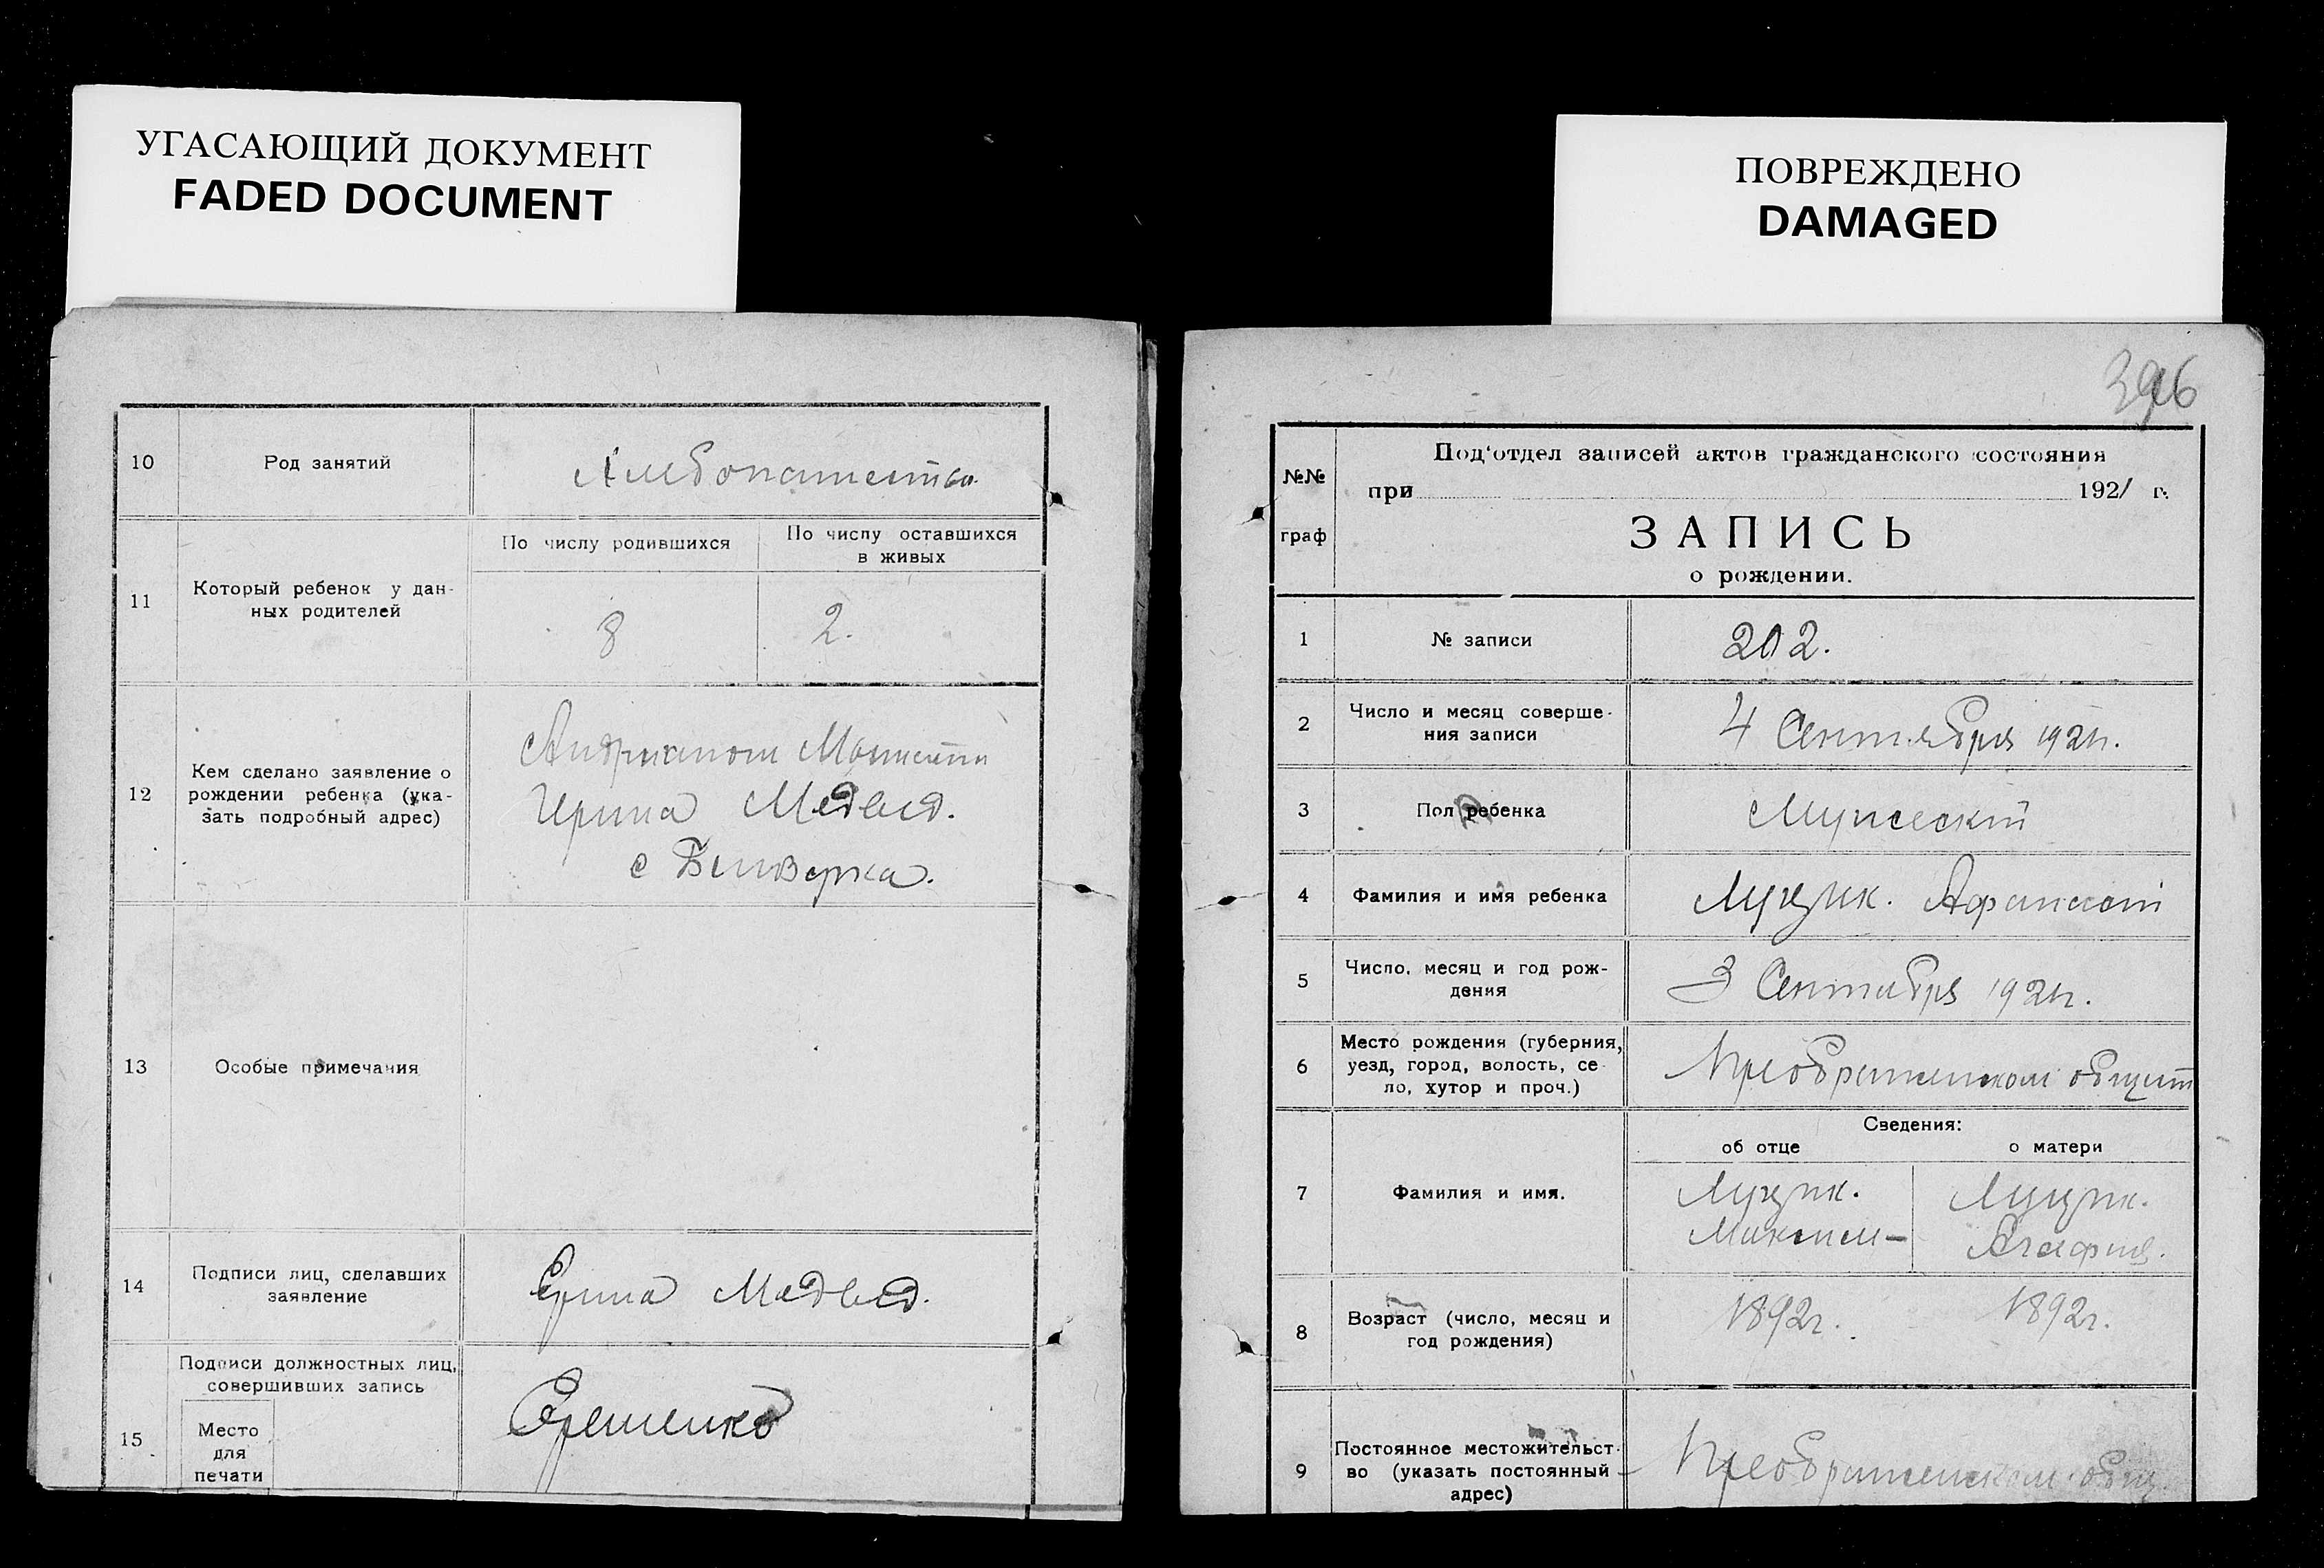 УГАСАЮЩИЙ ДОКУМЕНТ
FADED DOCUMENT
10
Род занятий
Хлебопашество
11
Который ребенок у дан-
ных родителей
По числу родившихся
По числу оставшихся
в живых
8
2.
12
Кем сделано заявление о
рождении ребенка (ука-
зать подробный адрес)
Ирина Медвед.
с Белозерка.
13
Особые примечания
14
Подписи лиц, сделавших
заявление
Ерина Медвед.
15
Подписи должностных лиц,
совершивших запись
Место
для
печати
Еременко
ПОВРЕЖДЕНО
DAMAGED
396
№№
граф
Под‘отдел записей актов гражданского состояния
при 1921 г.
ЗАПИСЬ
о рождении.
1
№ записи
202.
2
Число и месяц соверше-
ния записи
4 Сентября 1921г.
3
Пол ребенка
Мужеский
4
Фамилия и имя ребенка
Луцик. Афанасий
5
Число, месяц и год рож-
дения
3 Сентября 1921г.
6
Место рождения (губерния,
уезд, город, волость, се-
ло, хутор и проч.)
Преображенском общест
7
Фамилия и имя.
Сведения:
об отце
о матери
Луцик.
Максим
Луцик.
Агафия.
8
Возраст (число, месяц и
год рождения)
1892г.
1892г.
9
Постоянное местожительст-
во (указать постоянный
адрес)
Преображенском общ.